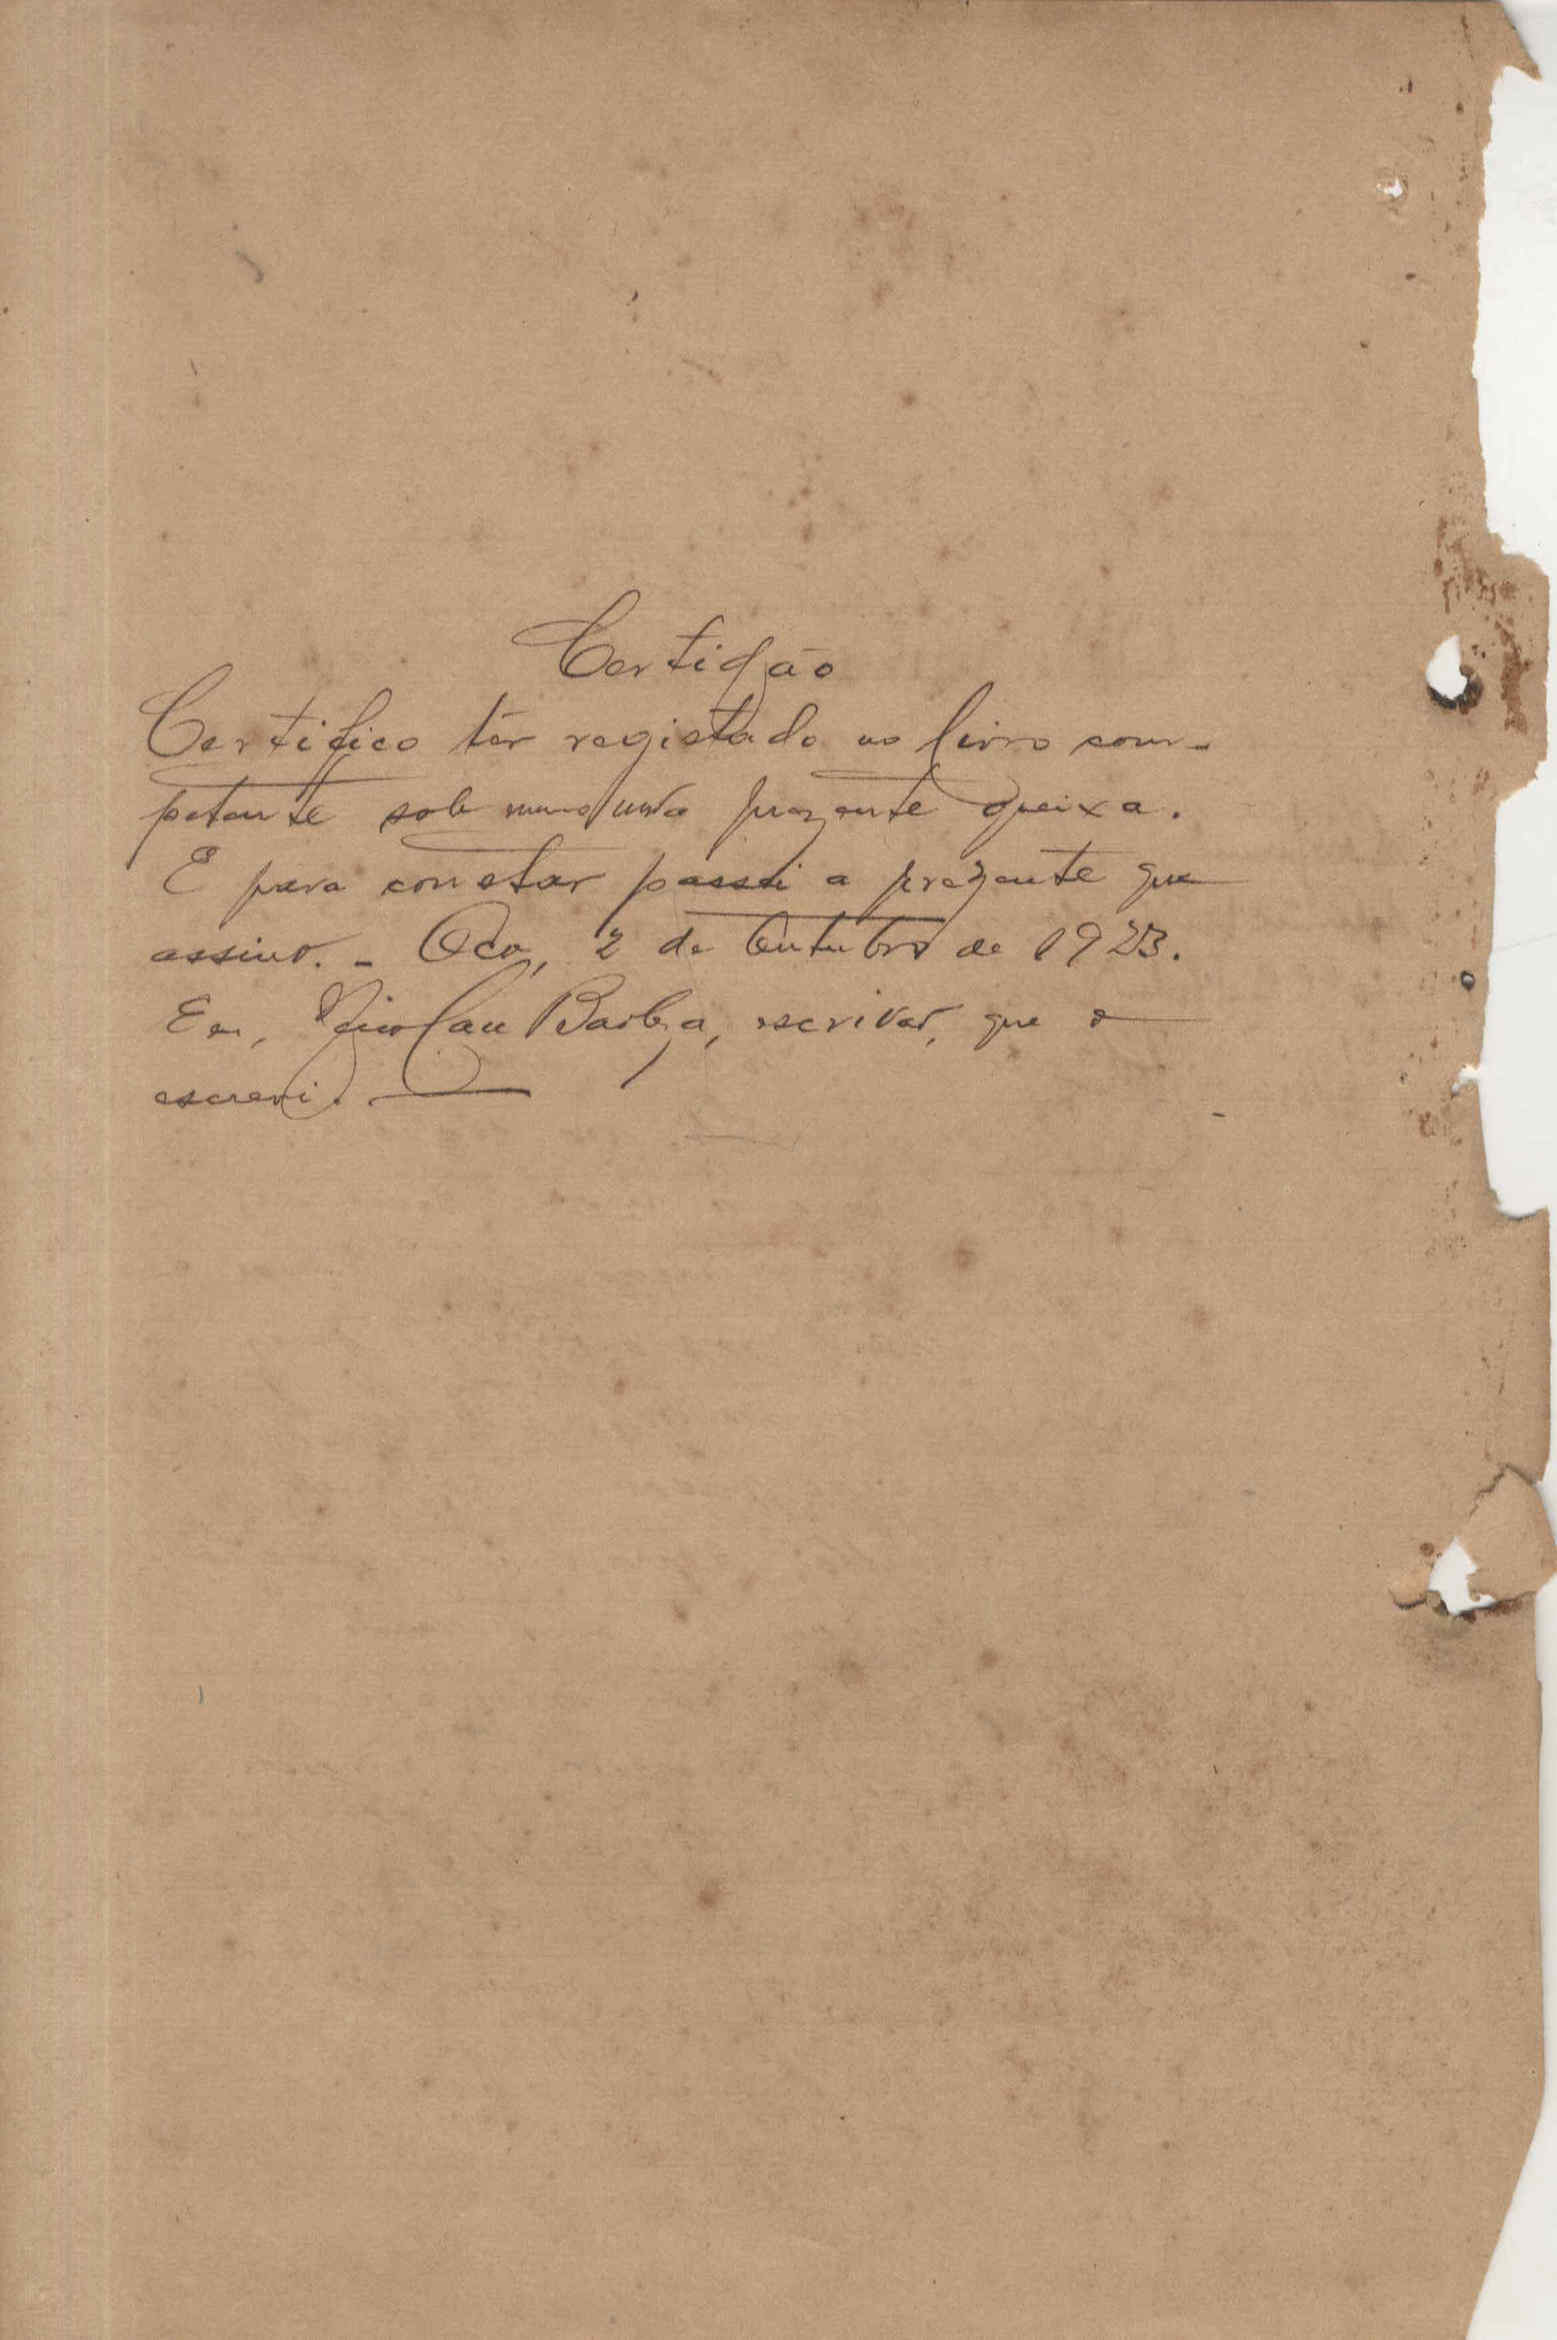 Certidão
Certifico tér registado no livro com-
petente sob prezente queixa.
E para constar passei a prezente que
assino. - Oco, 2 de Outubro de 1923.
Eu, Nicolau Barboza, escrivão, que o
escrevi.